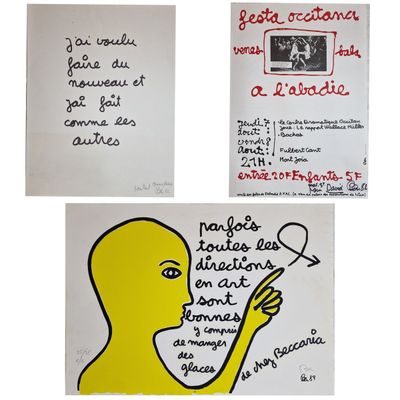 j'ai voulu
faire du
nouveau et
j'ai fait
comme les
autres
festa occitana
venes bals
a l'abadie
jeudi 7
août :
le Centre Dramatique Occitan
Bachas
vendredi 8
août :
Fulbert Cant
Mont Joia
21H.
entrée 20F Enfants 5F
parfois
toutes les
directions
en art
sont
bonnes
y compris
de manger
des
glaces
de chez Beccaria
Ben 89